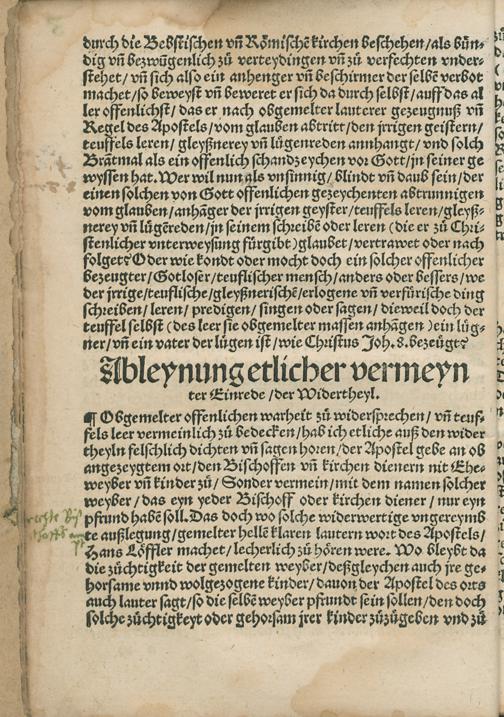 durch die Bebstischen vñ Römischẽ kirchen beschehen/als bün-
dig vñ bezwügenlich zů verteydingen vñ zů verfechten vnder-
stehet/ vñ sich also ein anhenger vñ beschirmer der selbẽ verbot
machet/so beweyst vñ beweret er sich da durch selbst/auff das al
ler offenlichst/das er nach obgemelter lauterer gezeugnuß vñ
Regel des Apostels/vom glauben abtritt/den jrrigen geistern/
teuffels leren/gleyßnerey vñ lügenreden annhangt/vnd solch
Brãtmal als ein offenlich schandzeychen vor Gott/jn seiner ge
wyssen hat. Wer wil nun als vnsinnig/blindt vñ daub sein/der
einen solchen von Gott offenlichen gezeychenten abtrunnigen
vom glauben/anhãger der jrrigen geyster/teuffels leren/gleyß-
nerey vñ lügẽreden/jn seinem schreibẽ oder leren (die er zů Chri-
stenlicher vnterweysung fürgibt)glaubet/vertrawet oder nach
folget? Oder wie kondt oder mocht doch ein solcher offenlicher
bezeugter/Gotloser/teuflischer mensch/anders oder bessers/we
der jrrige/teuflische/gleyßnerischẽ/erlogene vñ verfürische ding
schreiben/leren/predigen/singen oder sagen/dieweil doch der
teuffel selbst (des leer sie obgemelter massen anhãgen)ein lüg-
ner/vñ ein vater der lügen ist/wie Christus Joh.8.bezeugt?
Ableynung etlicher vermeyn
ter Einrede/der Widertheyl.
¶ Obgemelter offenlichen warheit zů widersprechen/vñ teuf-
fels leer vermeinlich zů bedecken/hab ich etliche auß den wider
theyln felschlich dichten vñ sagen horen/der Apostel gebe an ob
angezeygtem ort/den Bischoffen vñ kirchen dienern nit Ehe-
weyber vñ kinder zů/Sonder vermein/mit dem namen solcher
weyber/das eyn yeder Bischoff oder kirchen diener/nur eyn
pfrund habẽ soll. Das doch wo solche widerwertige vngereymb
te außlegung/gemelter hellẽ klaren lautern wort des Apostels/
Hans Löffler machet/lecherlich zů hören were. Wo bleybt da
die züchtigkeit der gemelten weyber/deßgleychen auch jre ge-
horsame vnnd wolgezogene kinder/dauon der Apostel des orts
auch lauter sagt/so die selbẽ weyber pfrundt sein sollen/den doch
solche züchtigkeyt oder gehorsam jrer kinder zůzůgeben vnd zů